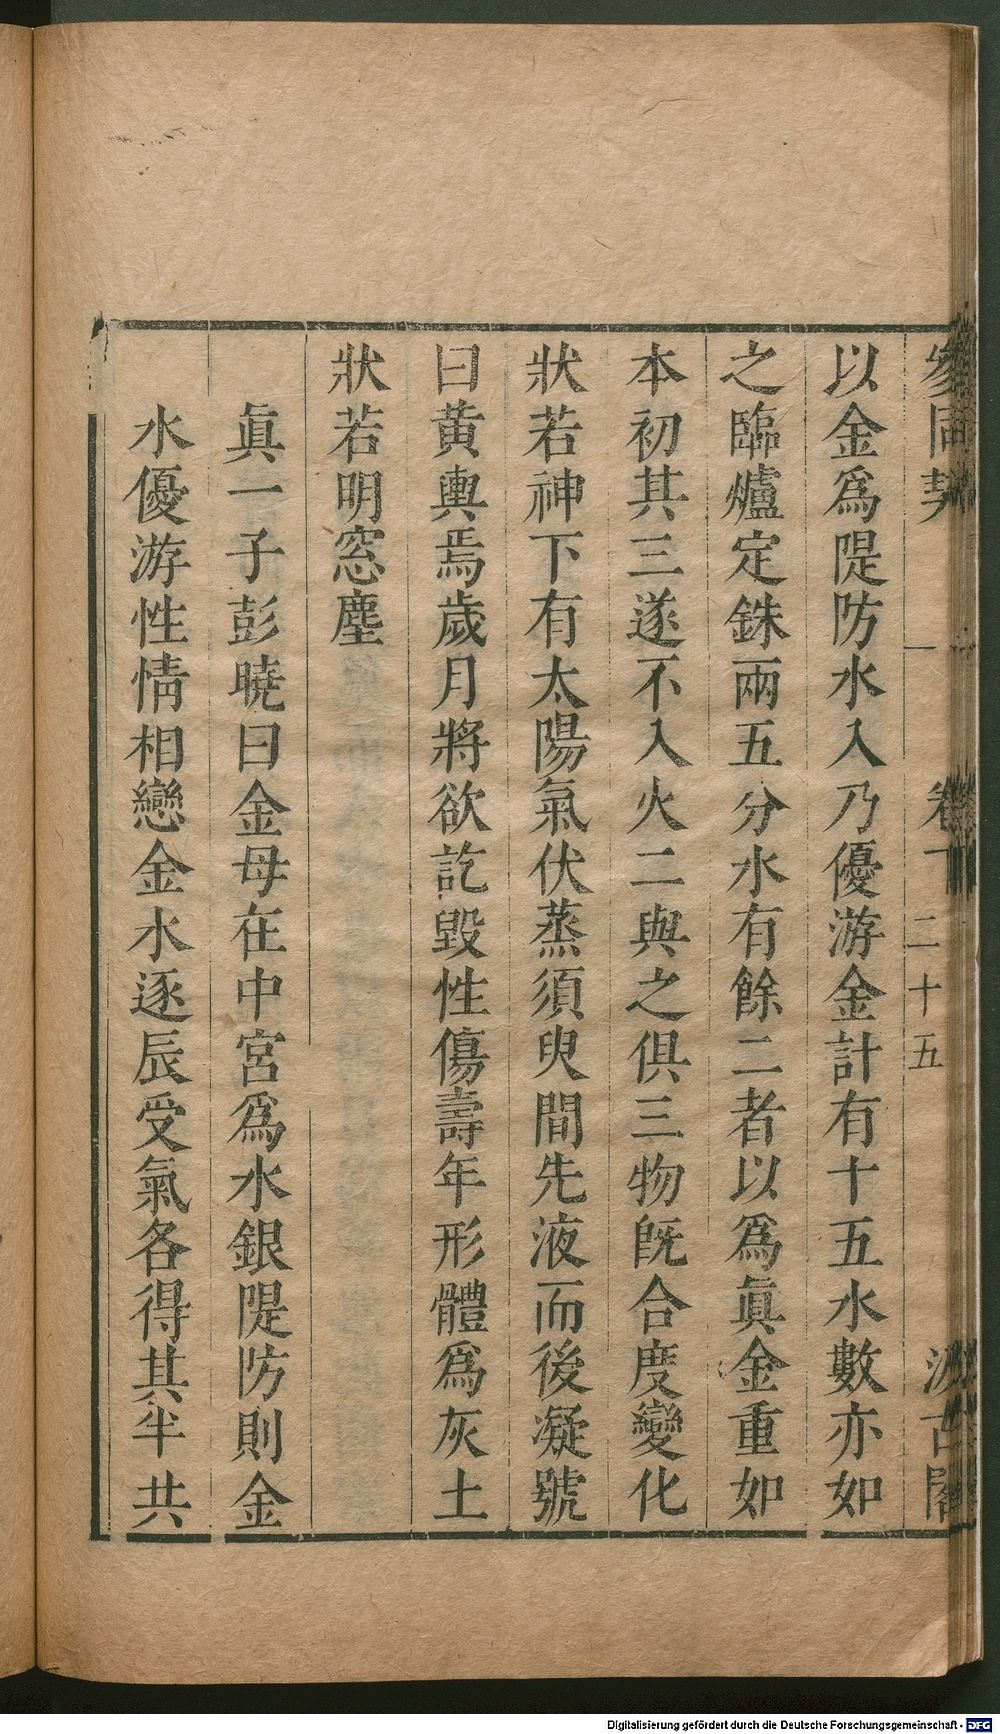 參同契 卷下 二十五 汲古閣
以金爲隄防水入乃優游金計有十五水數亦如
之臨爐定銖兩五分水有餘二者以爲眞金重如
本初其三遂不入火二與之俱三物旣合度變化
狀若神下有太陽氣伏蒸須臾間先液而後凝號
曰黃輿焉歲月將欲訖毀性傷壽年形體爲灰土
狀若明窓塵
眞一子彭曉曰金母在中宮爲水銀隄防則金
水優游性情相戀金水逐辰受氣各得其半共
Digitalisierung gefördert durch die Deutsche Forschungsgemeinschaft - DFG